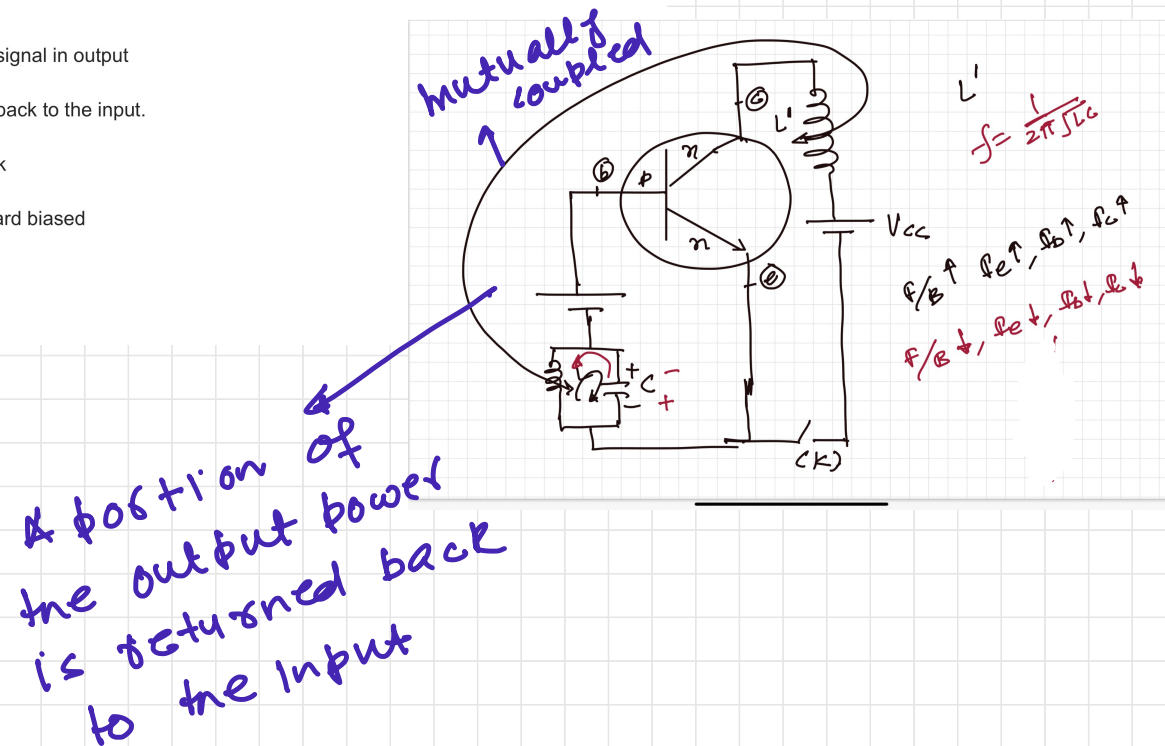 signal in output
back to the input.
k
ard biased
mutually
coupled
L'
f = 1/2π√LC
C
L'
n
b
p
n
Vcc
e
F/B↑ Ie↑, Ib↑, Ic↑
F/B↓, Ie↓, Ib↓, Ic↓
+ C −
− +
(K)
A portion of
the output power
is returned back
to the input